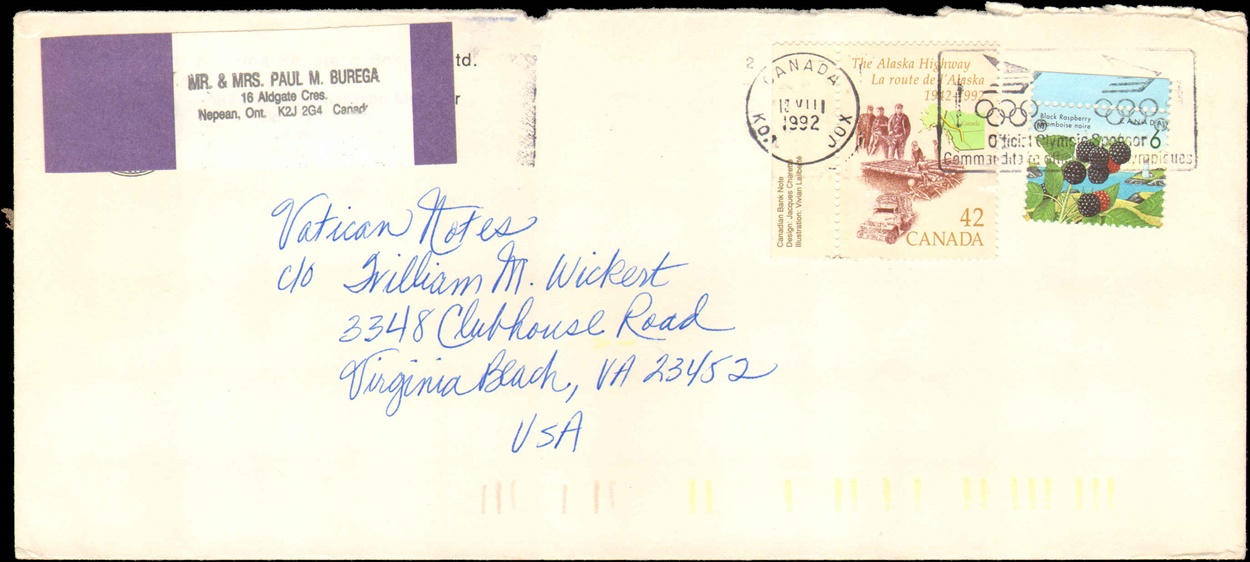 MR. & MRS. PAUL M. BUREGA
16 Aldgate Cres.
Nepean, Ont. K2J 2G4 Canada
td.
r
Vatican Notes
c/o William M. Wickert
3348 Clubhouse Road
Virginia Beach, VA 23452
USA
2
CANADA
VIII
1992
K0A
J0X
The Alaska Highway
La route de l'Alaska
1942-1992
Canada
42
CANADA
Canadian Bank Note
Design: Jacques Charette
Illustration: Vivian Laliberté
Black Raspberry
Framboise noire
CANADA
6
Official Olympic Sponsor
Commandite